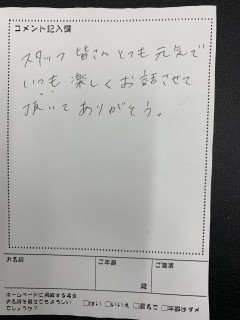 コメント記入欄
スタッフ 皆さん とても 元気で
いつも 楽しく お話させて
頂いて ありがとう。
お名前
ご年齢
ご職業
歳
ホームページに掲載する場合
お名前を載せてもよろしい
でしょうか?
□はい □いいえ □匿名で □年齢はダメ